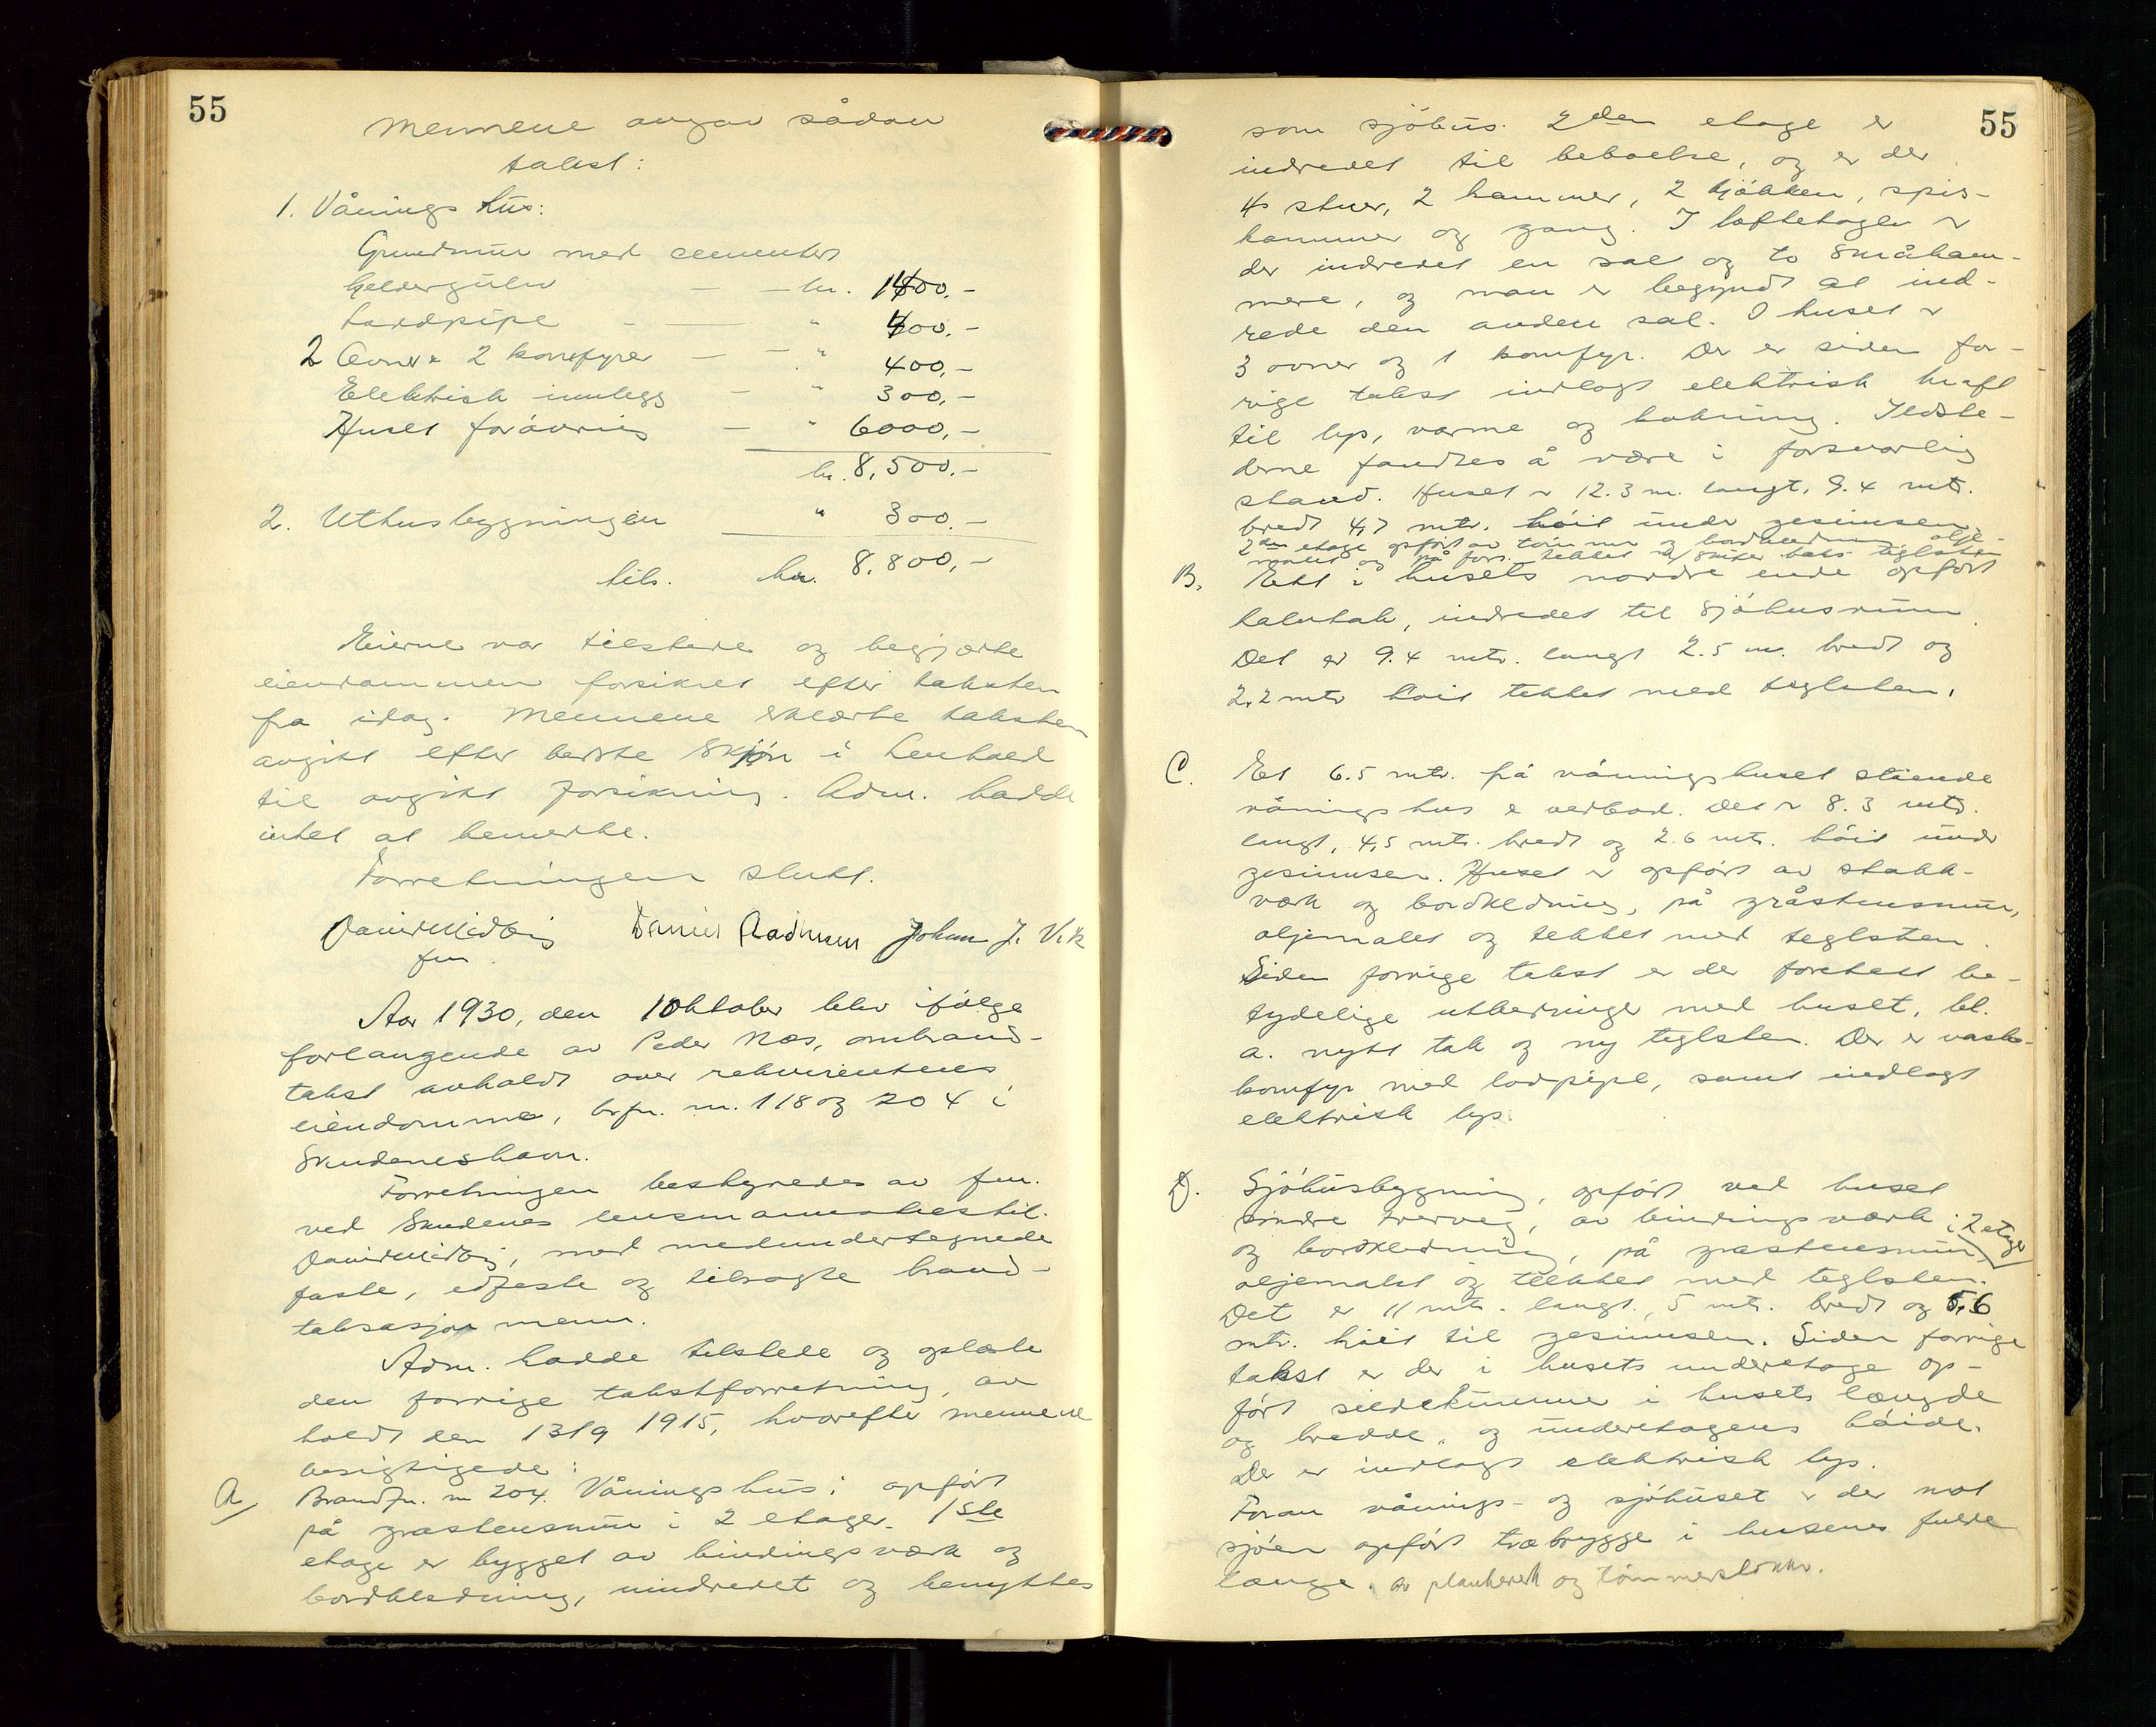 55
Mennene avgav sådan
takst:
1. Vånings hus:
Grundmur med cementert
kjeldergulv — — kr. 1400.-
Lordpipe - — " 400.-
2 Ovner & 2 komfyrer — — " 400,-
Elektrisk innlegg — " 300,-
Huset forövrig — " 6000,-
kr. 8,500.-
2. Uthusbygningen " 300.-
tils. kr. 8.800,-
Eierne var tilstede og begjærte
eiendommen forsikret efter taksten
fra idag. Mennene erklærte taksten
avgitt efter beste skjön i henhold
til avgitt forsikring. Adm. hadde
intet at bemerke.
Forretningen slutt.
David Midbö Daniel Rasmussen Johan J. Vik
fm.
Aar 1930, den 1 oktober blev ifölge
forlangende av Peder Næs, ombrand-
takst avholdt over rekvirentens
eiendomme, br.fn. nr. 118 og 204 i
Skudeneshavn.
Forretningen bestyredes av fm.
ved Skudenes lensmannsbestil.
David Midbö, med medundertegnede
faste, edfeste og tilsagte brand-
taksasjons menn.
Adm. hadde tilstede og oplæste
den forrige takstforretning, av
holdt den 13/9 1915, hvorefter mennene
besigtigede:
A/ Brandfn. nr 204. Våningshus: opfört
på gråstensmur i 2 etager. 1ste
etage er bygget av bindingsværk og
bordkledning, uindredet og benyttes
55
som sjöhus. 2den etage er
indredet til beboelse, og er der
4 stuer, 2 kammer, 2 kjökken, spis-
kammer og gang. I loftetagen er
der indredet en sal og to småkam-
mere, og man er begyndt at ind-
rede den anden sal. I huset er
3 ovner og 1 komfyr. Der er siden for-
rige takst indlagt elektrisk kraft
til lys, varme og kokning. Ildste-
derne fandtes å være i forsvarlig
stand. Huset er 12.3 m. langt, 9.4 mtr.
bredt 4,7 mtr. höit under gesimsen,
2den etage opfört av tömmer og bordkledning, olje-
malet og på fors. tekket m/ skifer baks. teglsten
B. Ett i husets nordre ende opfört
halvtak, indredet til sjöhusrum.
Det er 9.4 mtr. langt 2.5 m. bredt og
2,2 mtr höit tekket med teglsten.
C. Et 6.5 mtr. frå våningshuset stående
vånings hus & vedbod. Det er 8.3 mtr.
langt, 4,5 mtr. bredt og 2.6 mtr. höit under
gesimsen. Huset er opfört av stakk-
værk og bordkledning, på gråstensmur,
oljemalet og tekket med teglsten.
Siden forrige takst er der foretatt be-
tydelige utbedringer med huset, bl.
a. nytt tak og ny teglsten. Der er vaske-
komfyr med lodpipe, samt indlagt
elektrisk lys.
D. Sjöhusbygning, opfört ved huset
söndre tverveg, av bindingsværk i 2 etager
og bordkledning, på gråstensmur,
oljemalet og tekket med teglsten.
Det er 11 mtr. langt, 5 mtr. bredt og 5,6
mtr. höit til gesimsen. Siden forrige
takst er der i husets underetage op-
fört sildekumme i husets længde
og bredde, og underetagens höide.
Der er indlagt elektrisk lys.
Foran vånings- og sjöhuset er der mot
sjöen opfört træbrygge i husenes fulde
længe. av plankeverk og tömmerstokker.